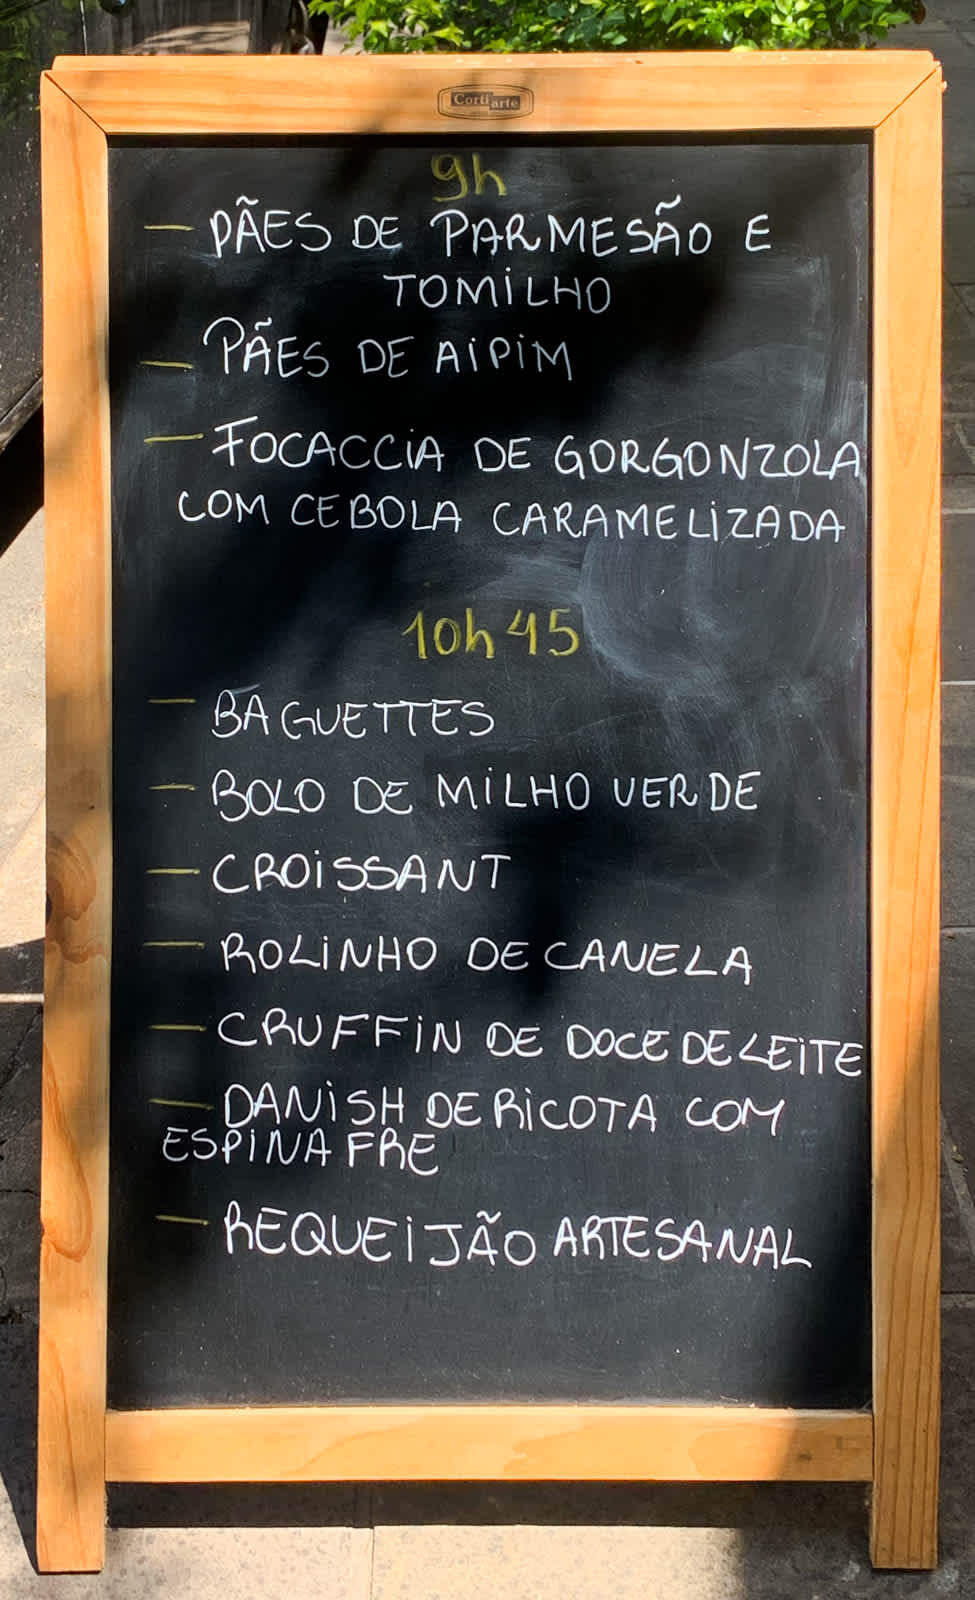 Corti arte
9h
— PÃES DE PARMESÃO E
TOMILHO
— PÃES DE AIPIM
— FOCACCIA DE GORGONZOLA
COM CEBOLA CARAMELIZADA
10h45
— BAGUETTES
— BOLO DE MILHO VERDE
— CROISSANT
— ROLINHO DE CANELA
— CRUFFIN DE DOCE DE LEITE
— DANISH DE RICOTA COM
ESPINAFRE
— REQUEIJÃO ARTESANAL